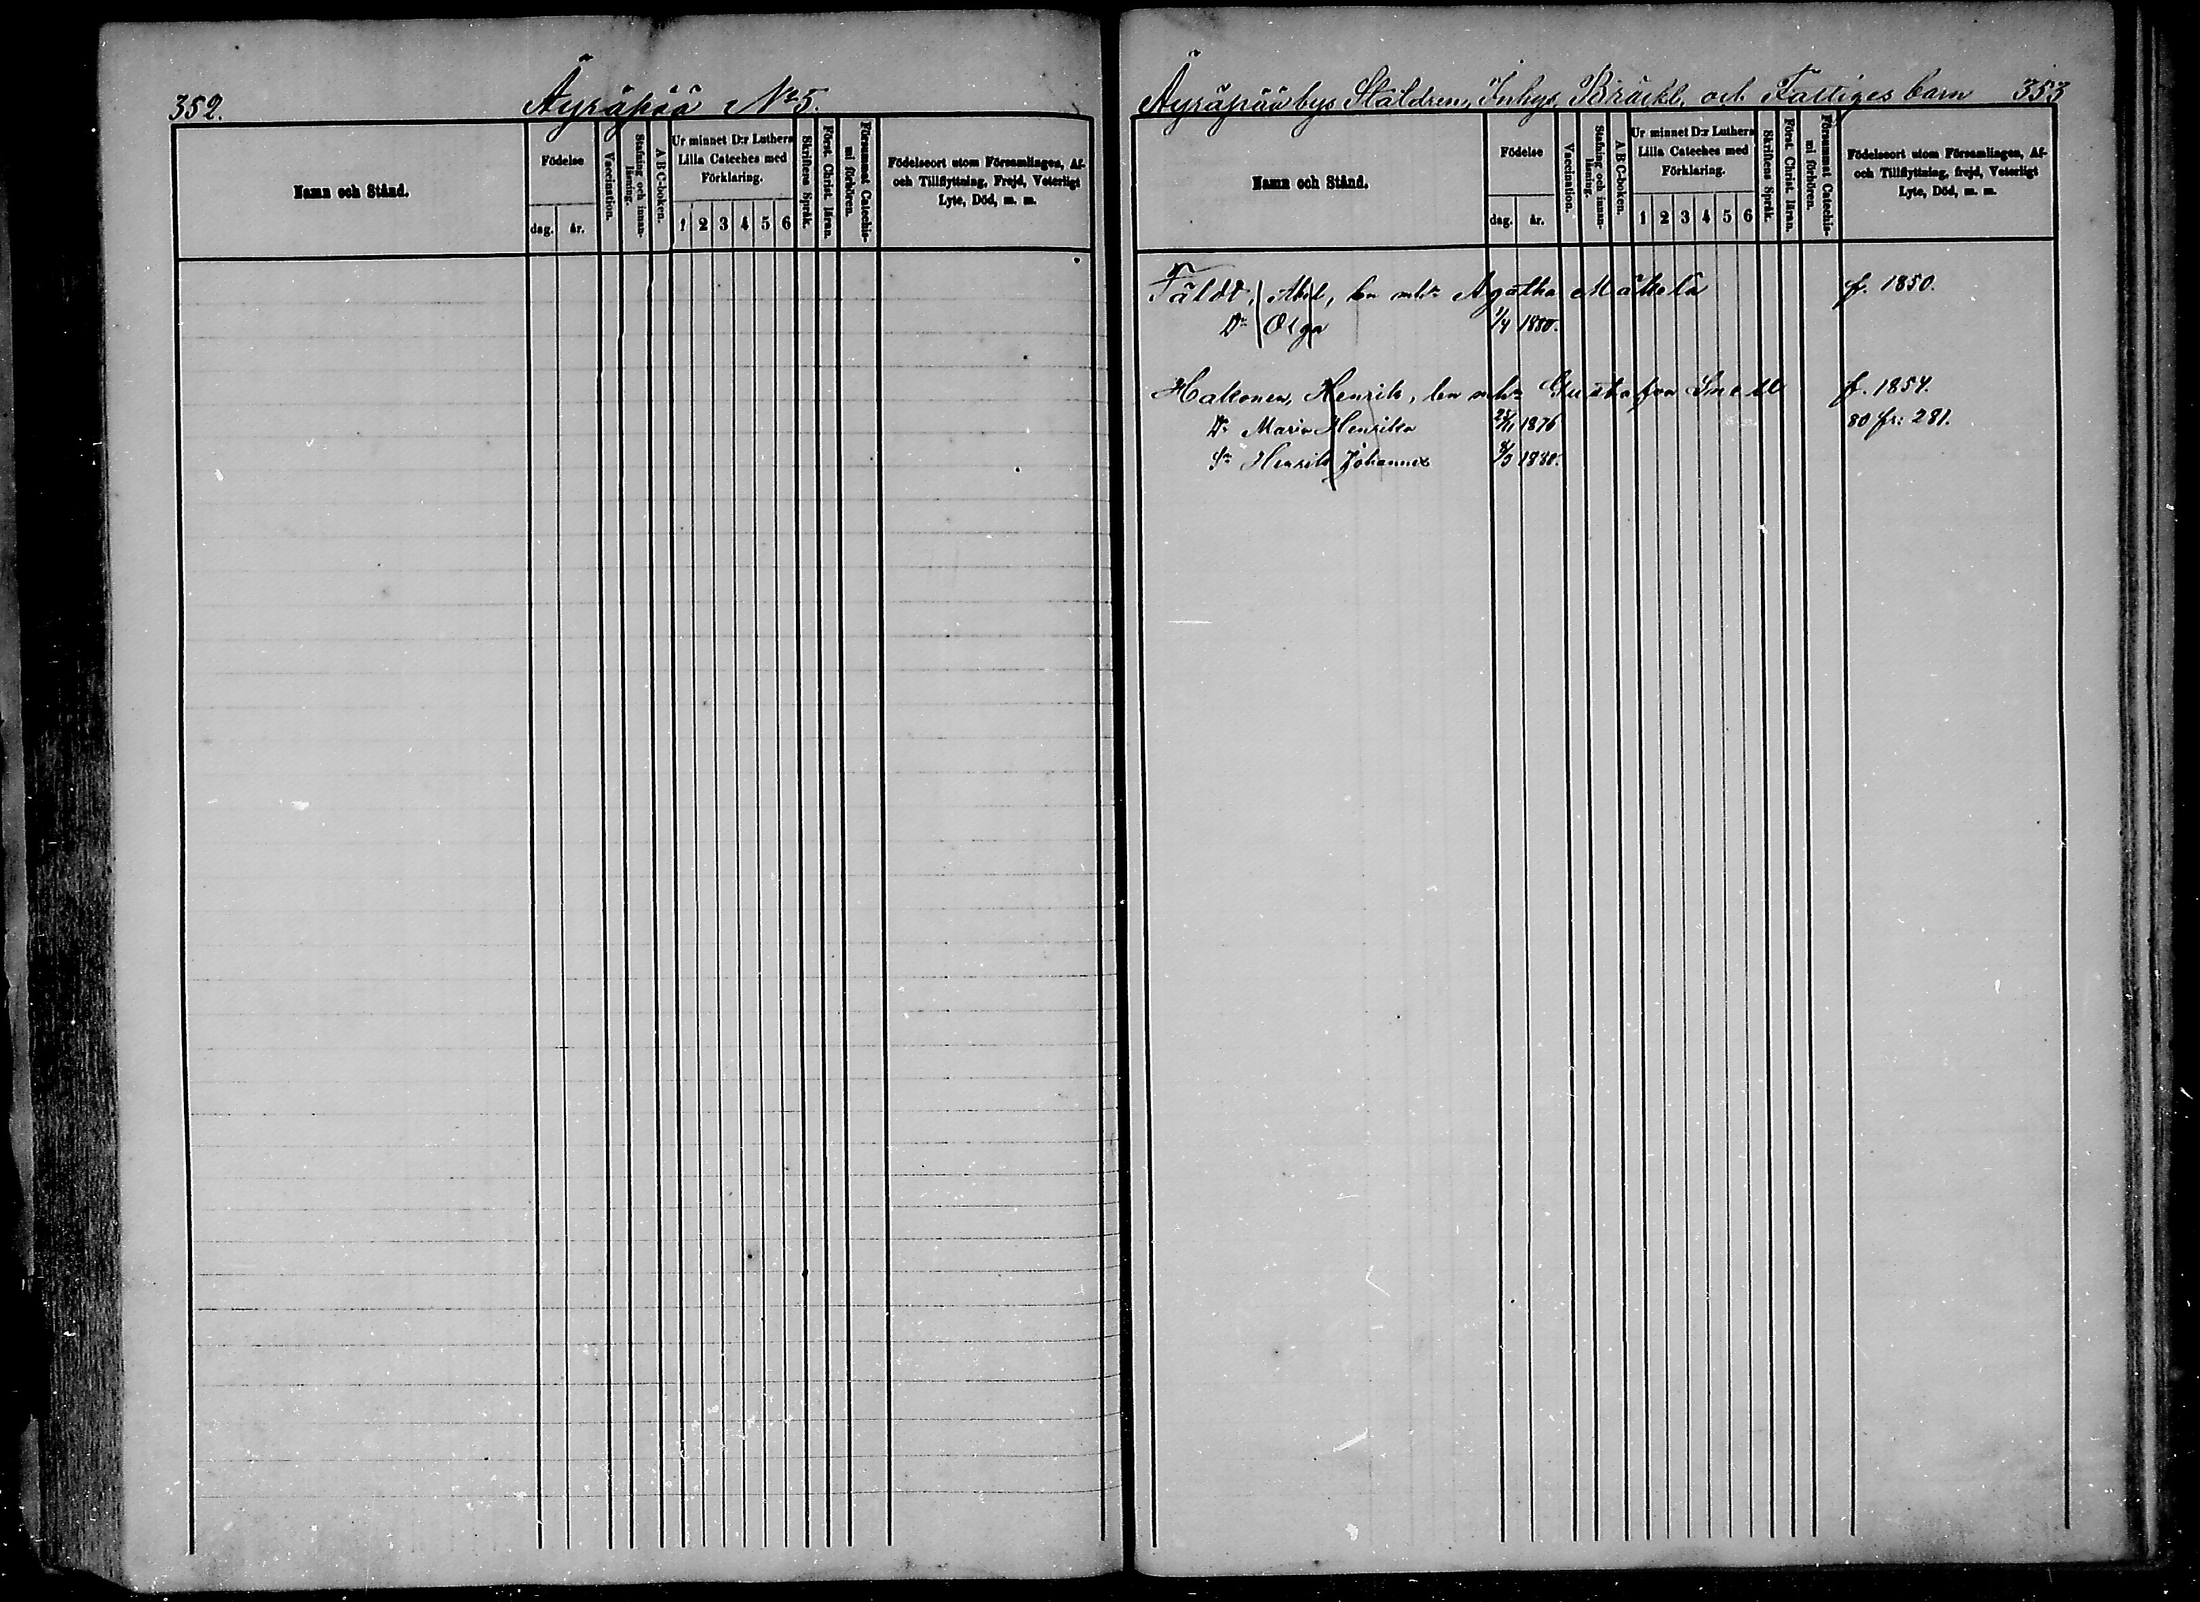 352.
Äyräpää No 5.
Namn och Stånd.
Födelse
dag.
år.
Vaccination.
Stafning och innan-
läsning.
A B C-boken.
Ur minnet D:r Luthers
Lilla Cateches med
Förklaring.
1 2 3 4 5 6
Skriftens Språk.
Först. Christ. läran.
Försummat Catechis-
mi förhören.
Födelseort utom Församlingen, Af-
och Tillflyttning, Frejd, Veterligt
Lyte, Död, m. m.
Äyräpää bys Ståldren, Inhys, Bräckl. och Fattiges barn 353
Namn och Stånd.
Födelse
dag.
år.
Vaccination.
Stafning och innan-
läsning.
A B C-boken.
Ur minnet D:r Luthers
Lilla Cateches med
Förklaring.
1 2 3 4 5 6
Skriftens Språk.
Först. Christ. läran.
Försummat Catechis-
mi förhören.
Födelseort utom Församlingen, Af-
och Tillflyttning, frejd, Veterligt
Lyte, Död, m. m.
Fäldt, Abel, Agatha Mäkelä f. 1850.
Dr Olga 1/4 1880.
Hakonen, Henrik, Gustafva Snell f. 1854.
Dr Maria Henrika 1876 80 fr: 281.
Sn Henrik Johannes 1880.